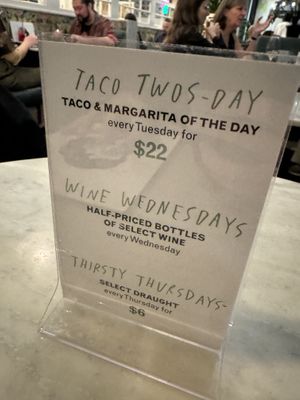 TACO TWOS-DAY
TACO & MARGARITA OF THE DAY
every Tuesday for
$22
WINE WEDNESDAYS
HALF-PRICED BOTTLES
OF SELECT WINE
every Wednesday
THIRSTY THURSDAYS-
SELECT DRAUGHT
every Thursday for
$6